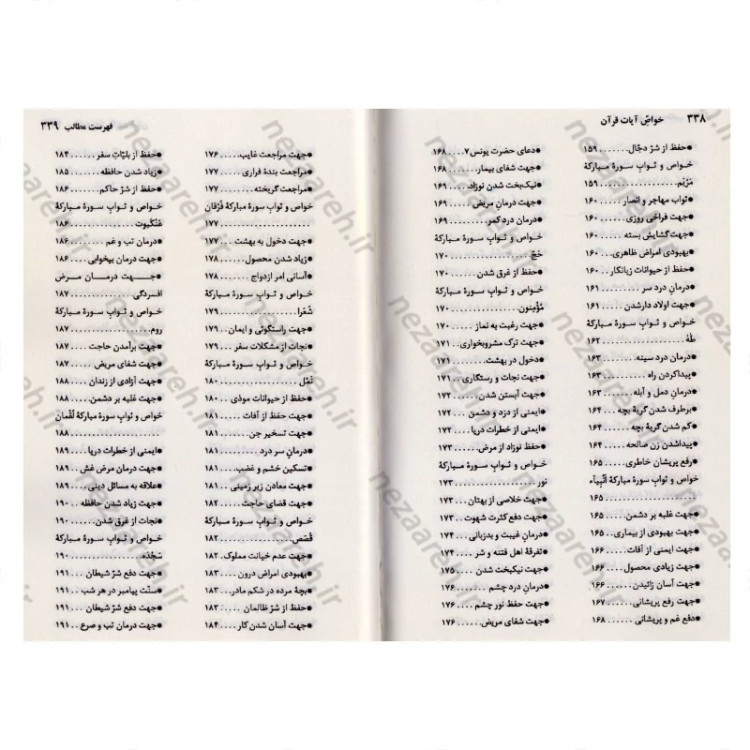 ۳۳۸ خواصّ آیات قرآن
●حفظ از شرّ دجّال......... ۱۵۹
خواص و ثواب سورهٔ مبارکهٔ
مَرْیَم..................... ۱۵۹
●ثواب مهاجر و انصار..... ۱۶۰
●جهت فراخی روزی...... ۱۶۰
●جهت گشایش بسته .... ۱۶۰
●بهبودی امراض ظاهری... ۱۶۰
●حفظ از حیوانات زیانکار.. ۱۶۰
●درمان درد سر........... ۱۶۱
●جهت اولاد دارشدن..... ۱۶۱
خواص و ثواب سورهٔ مبارکهٔ
طٰهٰ....................... ۱۶۲
●درمان درد سینه......... ۱۶۳
●پیداکردن راه ........... ۱۶۳
●درمان دمل و آبله ....... ۱۶۳
●برطرف شدن گریهٔ بچه .. ۱۶۴
●کم شدن گریهٔ بچه ..... ۱۶۴
●پیداشدن زن صالحه..... ۱۶۴
●رفع پریشان خاطری..... ۱۶۵
خواص و ثواب سورهٔ مبارکهٔ اَنْبِیآء
......................... ۱۶۵
●جهت غلبه بر دشمن.... ۱۶۵
●جهت بهبودی از بیماری.. ۱۶۵
●جهت ایمنی از آفات..... ۱۶۶
●جهت زیادی محصول.... ۱۶۶
●جهت آسان زائیدن...... ۱۶۶
●جهت رفع پریشانی...... ۱۶۷
●دفع غم و پریشانی ...... ۱۶۸
●دعای حضرت یونس۷.. ۱۶۸
●جهت شفای بیمار....... ۱۶۸
●نیک‌بخت شدن نوزاد... ۱۶۹
●جهت درمان مریض..... ۱۶۹
●درمان درد کمر.......... ۱۶۹
خواص و ثواب سورهٔ مبارکهٔ
حَجّ...................... ۱۷۰
●حفظ از غرق شدن...... ۱۷۰
خواص و ثواب سورهٔ مبارکهٔ
مُؤْمِنون................... ۱۷۰
●جهت رغبت به نماز..... ۱۷۰
●جهت ترک مشروبخواری.. ۱۷۱
●دخول در بهشت......... ۱۷۱
●جهت نجات و رستگاری.. ۱۷۱
●جهت آبستن شدن...... ۱۷۱
●ایمنی از دزد و دشمن.... ۱۷۲
●ایمنی از خطرات دریا.... ۱۷۲
●حفظ نوزاد از مرض...... ۱۷۳
خواص و ثواب سورهٔ مبارکهٔ
نور ...................... ۱۷۳
●جهت خلاصی از بهتان... ۱۷۳
●جهت دفع کثرت شهوت.. ۱۷۳
●درمان غیبت و بدزبانی... ۱۷۴
●تفرقهٔ اهل فتنه و شر .... ۱۷۴
●جهت نیکبخت شدن.... ۱۷۵
●جهت درمان درد چشم... ۱۷۶
●جهت حفظ نور چشم ... ۱۷۶
●جهت شفای مریض...... ۱۷۶
فهرست مطالب ۳۳۹
●جهت مراجعت غایب..... ۱۷۶
●مراجعت بندهٔ فراری..... ۱۷۷
●مراجعت گریخته........ ۱۷۷
خواص و ثواب سورهٔ مبارکهٔ فُرْقان
......................... ۱۷۷
●جهت دخول به بهشت... ۱۷۷
●زیاد شدن محصول...... ۱۷۸
●آسانی امر ازدواج........ ۱۷۸
خواص و ثواب سورهٔ مبارکهٔ
شُعَرا..................... ۱۷۹
●جهت راستگوئی و ایمان.. ۱۷۹
●نجات از مشکلات سفر.. ۱۷۹
خواص و ثواب سورهٔ مبارکهٔ
نَمْل...................... ۱۸۰
●حفظ از حیوانات موذی.. ۱۸۰
●جهت حفظ از آفات..... ۱۸۱
●جهت تسخیر جن....... ۱۸۱
●درمان سر درد.......... ۱۸۱
●تسکین خشم و غضب... ۱۸۱
●جهت معادن زیر زمینی.. ۱۸۱
●جهت قضای حاجت .... ۱۸۲
خواص و ثواب سورهٔ مبارکهٔ
قَصَص.................... ۱۸۲
●جهت عدم خیانت مملوک. ۱۸۲
●بهبودی امراض درون.... ۱۸۳
●بچهٔ مرده در شکم مادر.. ۱۸۳
●حفظ از شرّ ظالمان...... ۱۸۳
●جهت آسان شدن کار.... ۱۸۴
●حفظ از بلیّات سفر...... ۱۸۴
●زیاد شدن حافظه........ ۱۸۵
●حفظ از شرّ حاکم....... ۱۸۶
خواص و ثواب سورهٔ مبارکهٔ
عَنْکَبوت.................. ۱۸۶
●درمان تب و غم ........ ۱۸۶
●جهت درمان بیخوابی... ۱۸۶
●جهت درمان مرض
افسردگی................. ۱۸۷
خواص و ثواب سورهٔ مبارکهٔ
روم...................... ۱۸۷
●جهت برآمدن حاجت ... ۱۸۷
●جهت شفای مریض..... ۱۸۷
●جهت آزادی از زندان ... ۱۸۸
●جهت غلبه بر دشمن.... ۱۸۸
خواص و ثواب سورهٔ مبارکهٔ لُقْمان
......................... ۱۸۸
●ایمنی از خطرات دریا.... ۱۸۹
●جهت درمان مرض غش.. ۱۸۹
●علاقه به مسائل دینی.... ۱۸۹
●جهت زیاد شدن حافظه. ۱۹۰
●نجات از غرق شدن..... ۱۹۰
خواص و ثواب سورهٔ مبارکهٔ
سَجْدَه.................... ۱۹۰
●جهت دفع شرّ شیطان... ۱۹۱
●سنّت پیامبر در هر شب.. ۱۹۱
●جهت دفع شرّ شیطان... ۱۹۱
●جهت درمان تب و صرع.. ۱۹۱
nezaareh.ir
nezaareh.ir
nezaareh.ir
nezaareh.ir